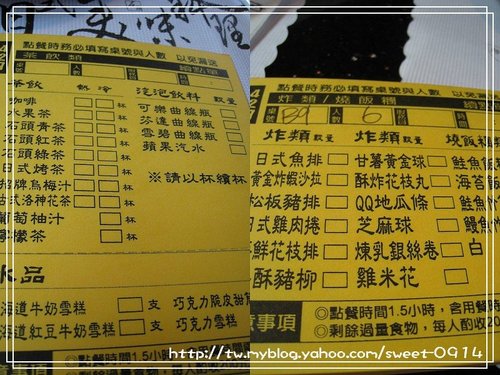 點餐時務必填寫桌號與人數 以免漏送
茶飲類
續點單
茶飲 熱 冷
咖啡 杯
水果茶 杯
石頭青茶 杯
石頭紅茶 杯
石頭綠茶 杯
日式烤茶 杯
招牌烏梅汁 杯
古式洛神花茶 杯
葡萄柚汁 杯
檸檬茶 杯
汽泡飲料 數量
可樂曲線瓶
芬達曲線瓶
雪碧曲線瓶
蘋果汽水
※請以杯續杯
冰品
海道牛奶雪糕 支 巧克力脆皮甜筒
海道紅豆牛奶雪糕 支 巧克力
點餐時間1.5小
點餐時務必填寫桌號與人數 以免漏
炸類/燒飯糰
桌號 B9 人數 6 續點
炸類 數量
日式魚排
黃金炸蝦沙拉
松板豬排
日式雞肉捲
鮮花枝排
酥豬柳
炸類 數量
甘薯黃金球
酥炸花枝丸
QQ地瓜條
芝麻球
煉乳銀絲卷
雞米花
燒飯糰類
鮭魚飯
海苔
鮭魚
鰻魚
白
意事項
◎點餐時間1.5小時,含用餐時
◎剩餘過量食物,每人酌收20
http://tw.myblog.yahoo.com/sweet-0914